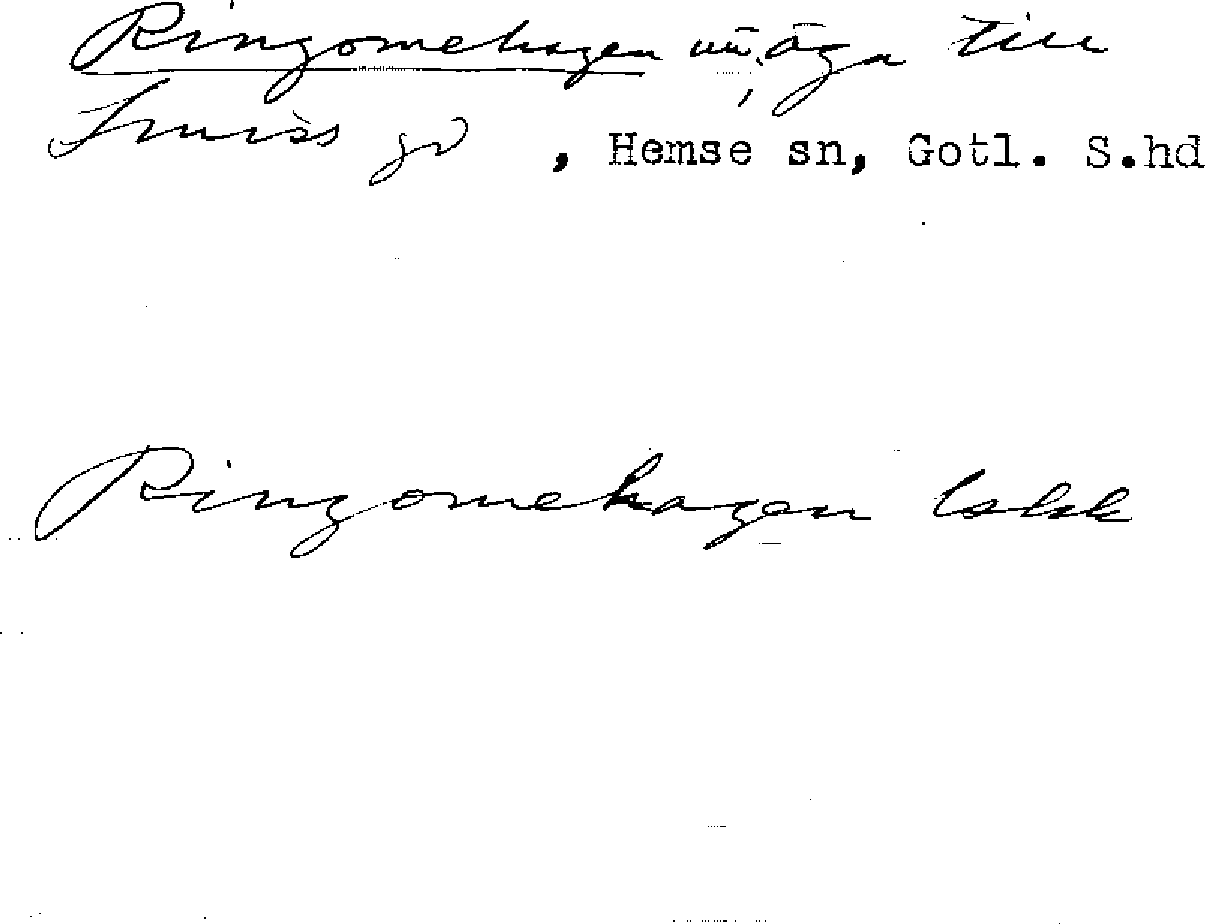 Ringomehagen, äga till
Smiss gd, Hemse sn, Gotl. S.hd
Ringomehagen